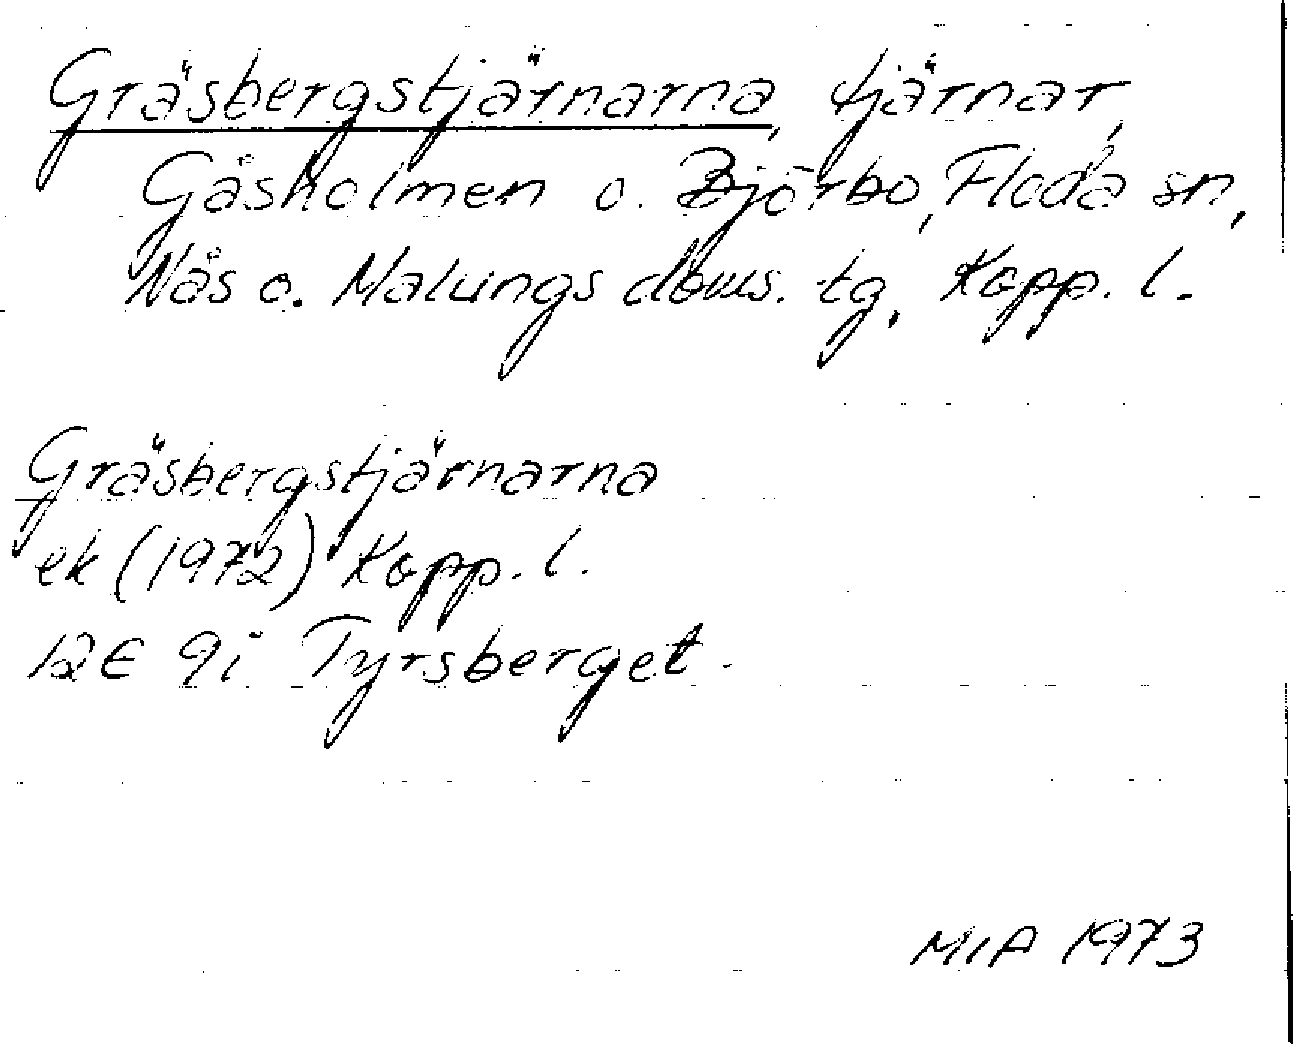 Gräsbergstjärnarna, tjärnar,
Gåsholmen o. Björbo, Floda sn,
Nås o. Malungs doms. tg, Kopp. l.
Gräsbergstjärnarna
ek (1972) Kopp. l.
12E 9i Tyrsberget.
MIA 1973